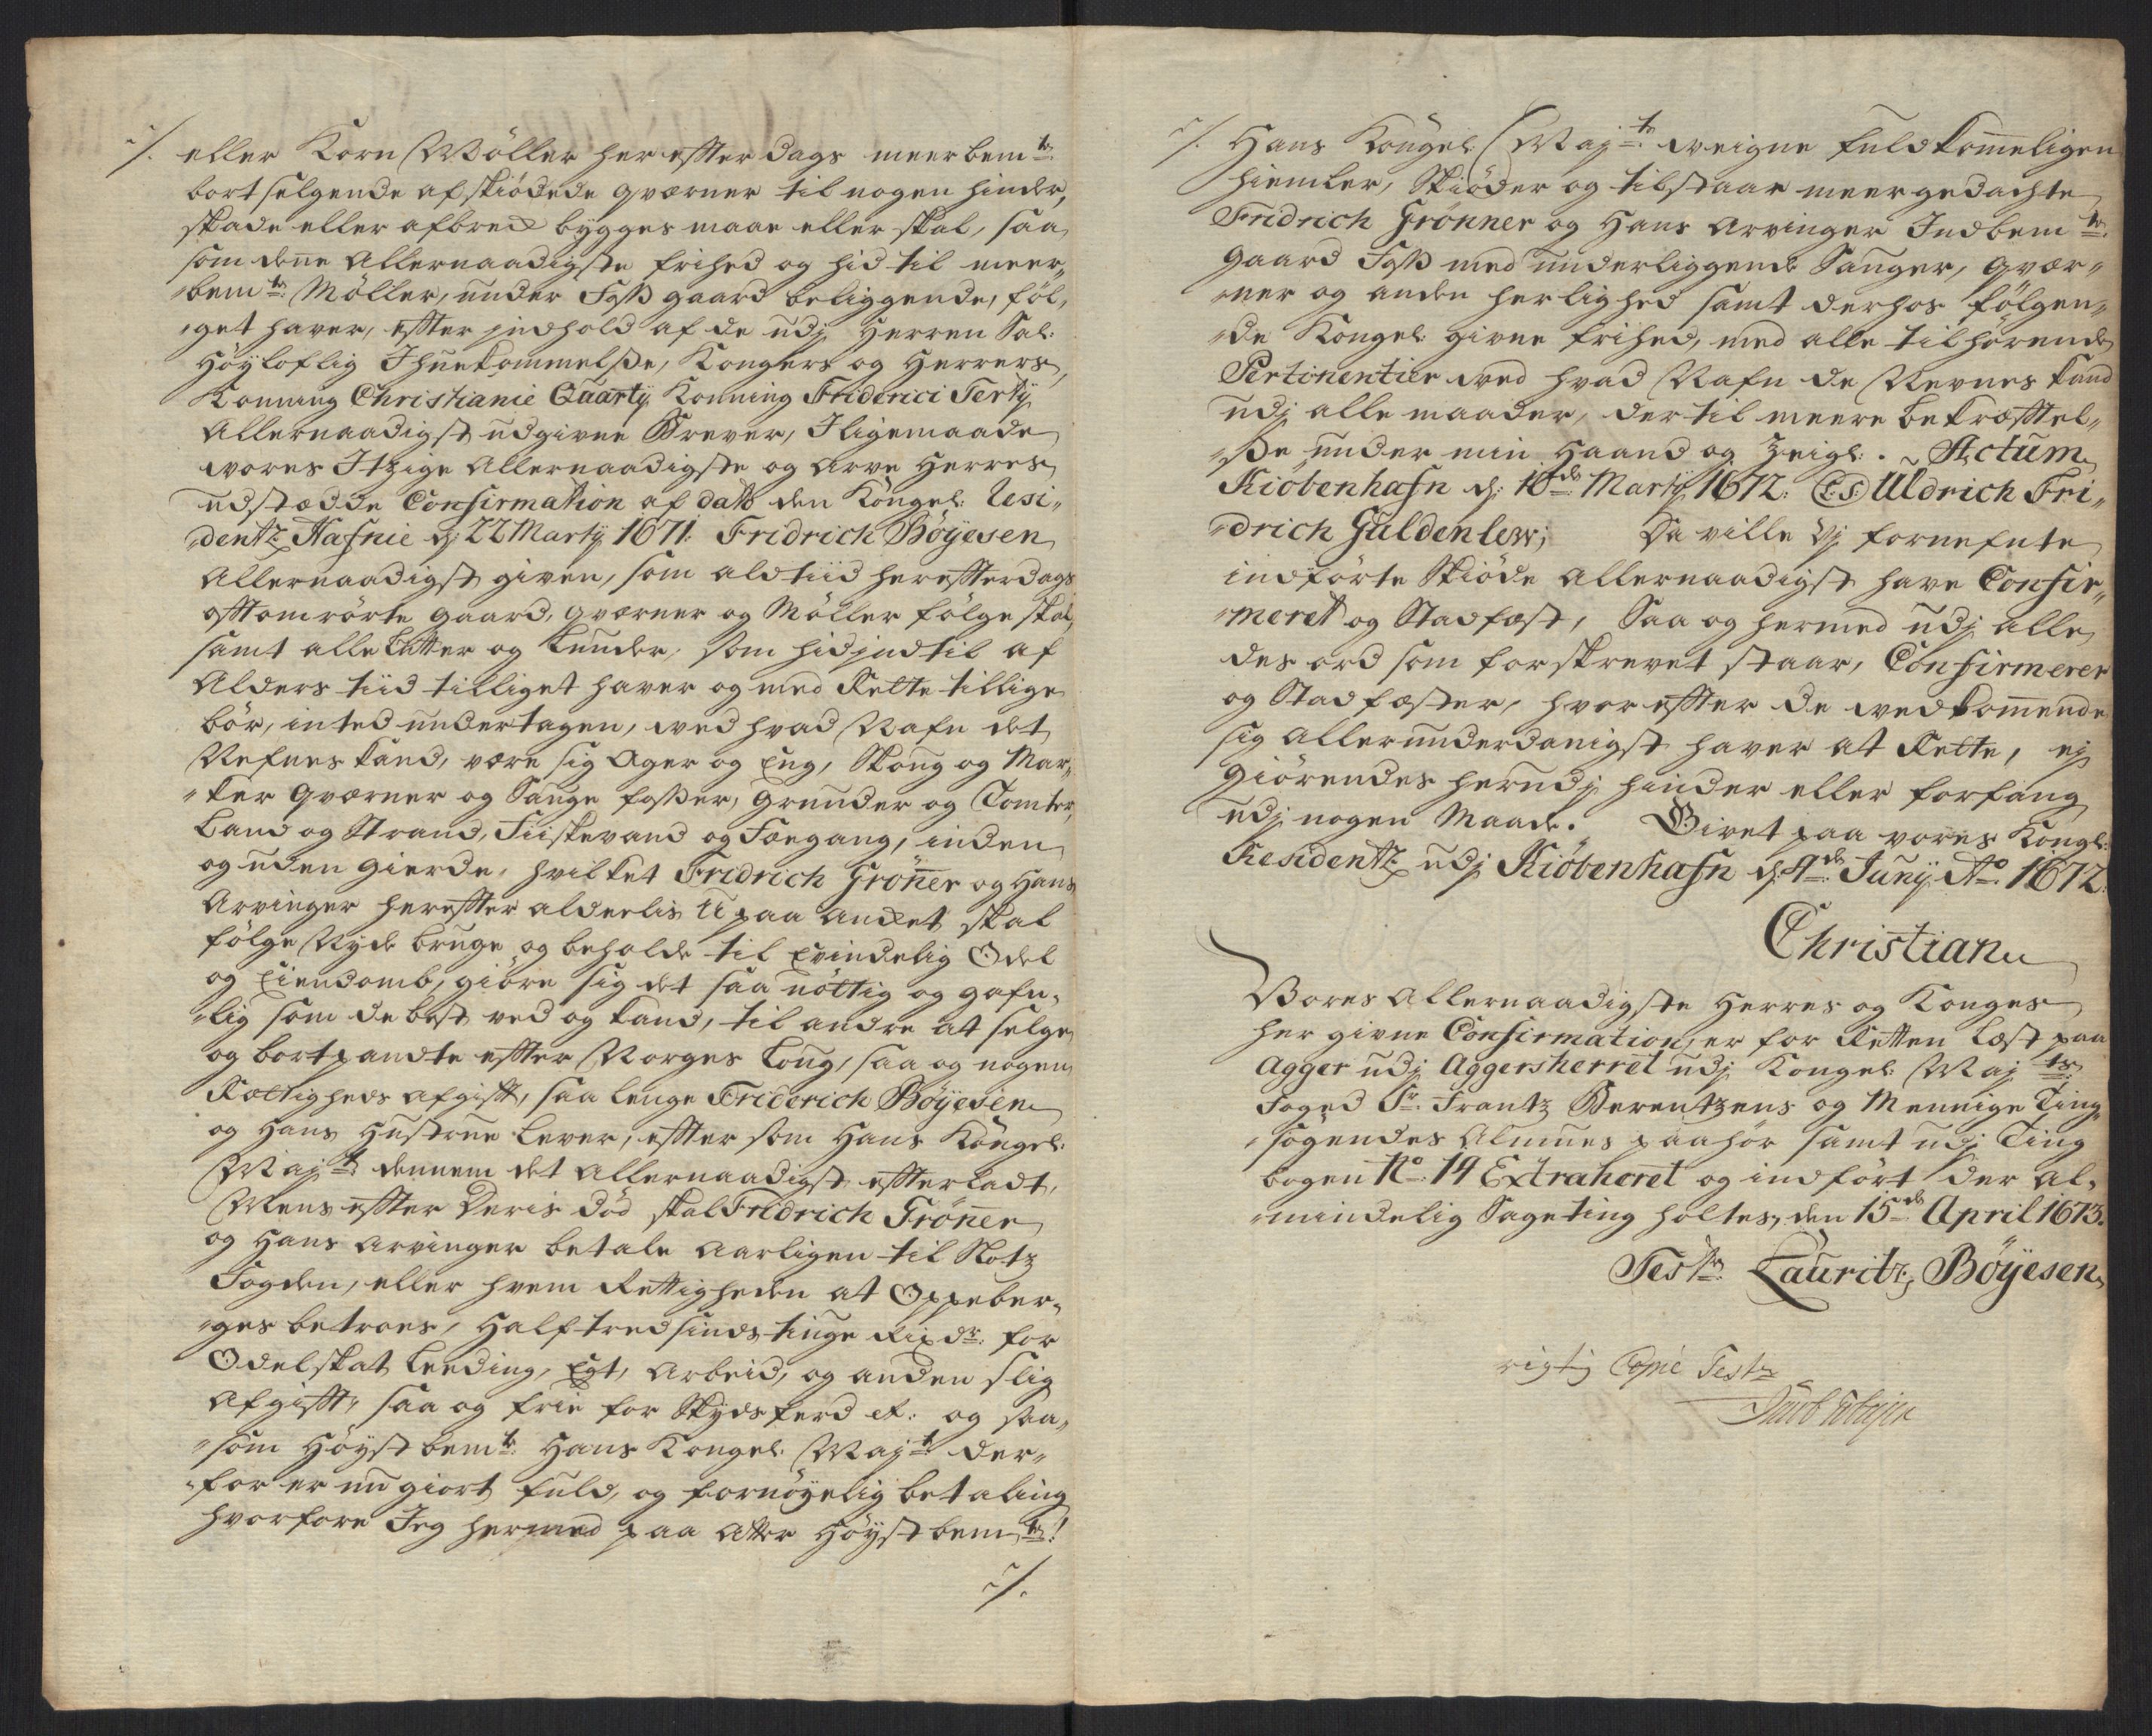 ·/. eller Korn Møller her efter dags meerbem.te
bortselgende afskiödede qværner til nogen hinder,
skade eller afbred bygges maae eller skal, saa
som denne Allernaadigste frihed og hid til meer„
„bem.te Möller, under Foss gaard beliggende, föl„
„get haver, efter indhold af de udj Herren Sal:
Höyloflig Ihuekommelsse, Kongers og Herrers,
Konning Christianie Qüarty Konning Friderici Terty
Allernaadigst udgivne Brever, Iligemaade
vores Itzige Allernaadigste og Arve Herres
udstædde Confirmation af dato den Kongel: Resi„
„dentz Hafnie d: 22 Marty 1671. Fridrich Böyesen
Allernaadigst given, som altiid herefter dags
oftomrörte gaard, qværner og Möller fölge skal,
samt alle Lutter og Lunder, som hidindtil af
Alders tiid tilliget haver og med Rette tillige
bör, inted undertagen, ved hvad Nafn det
Nefnes kand, være sig Ager og Eng, Skoug og Mar„
„ker qværner og Sauge fosser, Grunder og Tomter,
Land og Strand, Fiiskevand og Foegang, inden
og uden gierde, hvilket Fridrich Gröner og Hans
Arvinger herefter alderlis U paa Anket skal
fölge Nyde bruge og beholde til Evindelig Odel
og Eiendomb, giöre sig det saa nöttig og gafn„
„lig som de best ved og kand, til andre at selge
og bortpandte efter Norges Loug, saa og nogen
Rættigheds afgift, saa lenge Friderich Böyesen
og Hans Hustrue Lever, efter som Hans Kongel:
Maj.t dennem det Allernaadigst efterladt,
Mens efter Deris död skal Fridrich Gröner
og Hans Arvinger betale Aarligen til Slotz
Fogden, eller hvem Rettigheden at Oppeber„
„ges betroes, Halftredsinds tiuge Rixdr: for
Odelskat Leeding, Egt, Arbeid, og anden slig
Afgift, saa og frie for Skydsferd et: og saa„
„som Höyst bem.te Hans Kongel. Maj.t der„
„for er nu giort fuld, og fornöyelig betaling
hvorfore Jeg hermed paa Atter Höyst bem.te!
·/.
·/. Hans Kongel. Maj.ts veigne fuldkommeligen
hiemler, Skiöder og tilstaar meergedachte
Fridrich Grönner og Hans Arvinger Indbem.te
gaard Foss med underliggende Sauger, qvær„
„ner og anden herlighed samt derhos fölgen„
„de Kongel: givne frihed, med alle tilhörende
Pertinentier ved hvad Nafn de Nevnes kand
udj alle maader, der til meere bekræftel„
„sse under min Haand og Zeigl. Actum
Kiöbenhafn d: 16de Marty 1672. L:S: Uldrich Fri„
„drich Güldenlew; Da ville Vj fornefnte
indförte Skiöde Allernaadigst have Confir„
„meret og Stadfæst, Saa og hermed udj alle
des ord som forskrevet staar, Confirmerer
og Stadfæster, hvor efter de vedkommende
sig Allerunderdanigst haver at Rette, ej
giörendes herudj hinder eller forfang
udj nogen Maade. Givet paa vores Kongl:
Residentz udj Kiöbenhafn d: 4de Juny Ao 1672.
Christian
Vores Allernaadigste Herres og Konges
her givne Confirmation, er for Retten Læst paa
Agger udj Aggersherret udj Kongel: Maj.ts
Foged Sr. Frantz Berentzens og Mennige Ting„
„sögendes Almues paahör samt udj Ting
bogen No. 14 Extraheret og indfört der Al„
„mindelig Sageting holtes, den 15de April 1673.
Test: Lauritz Böyesen
rigtig Copie Test: